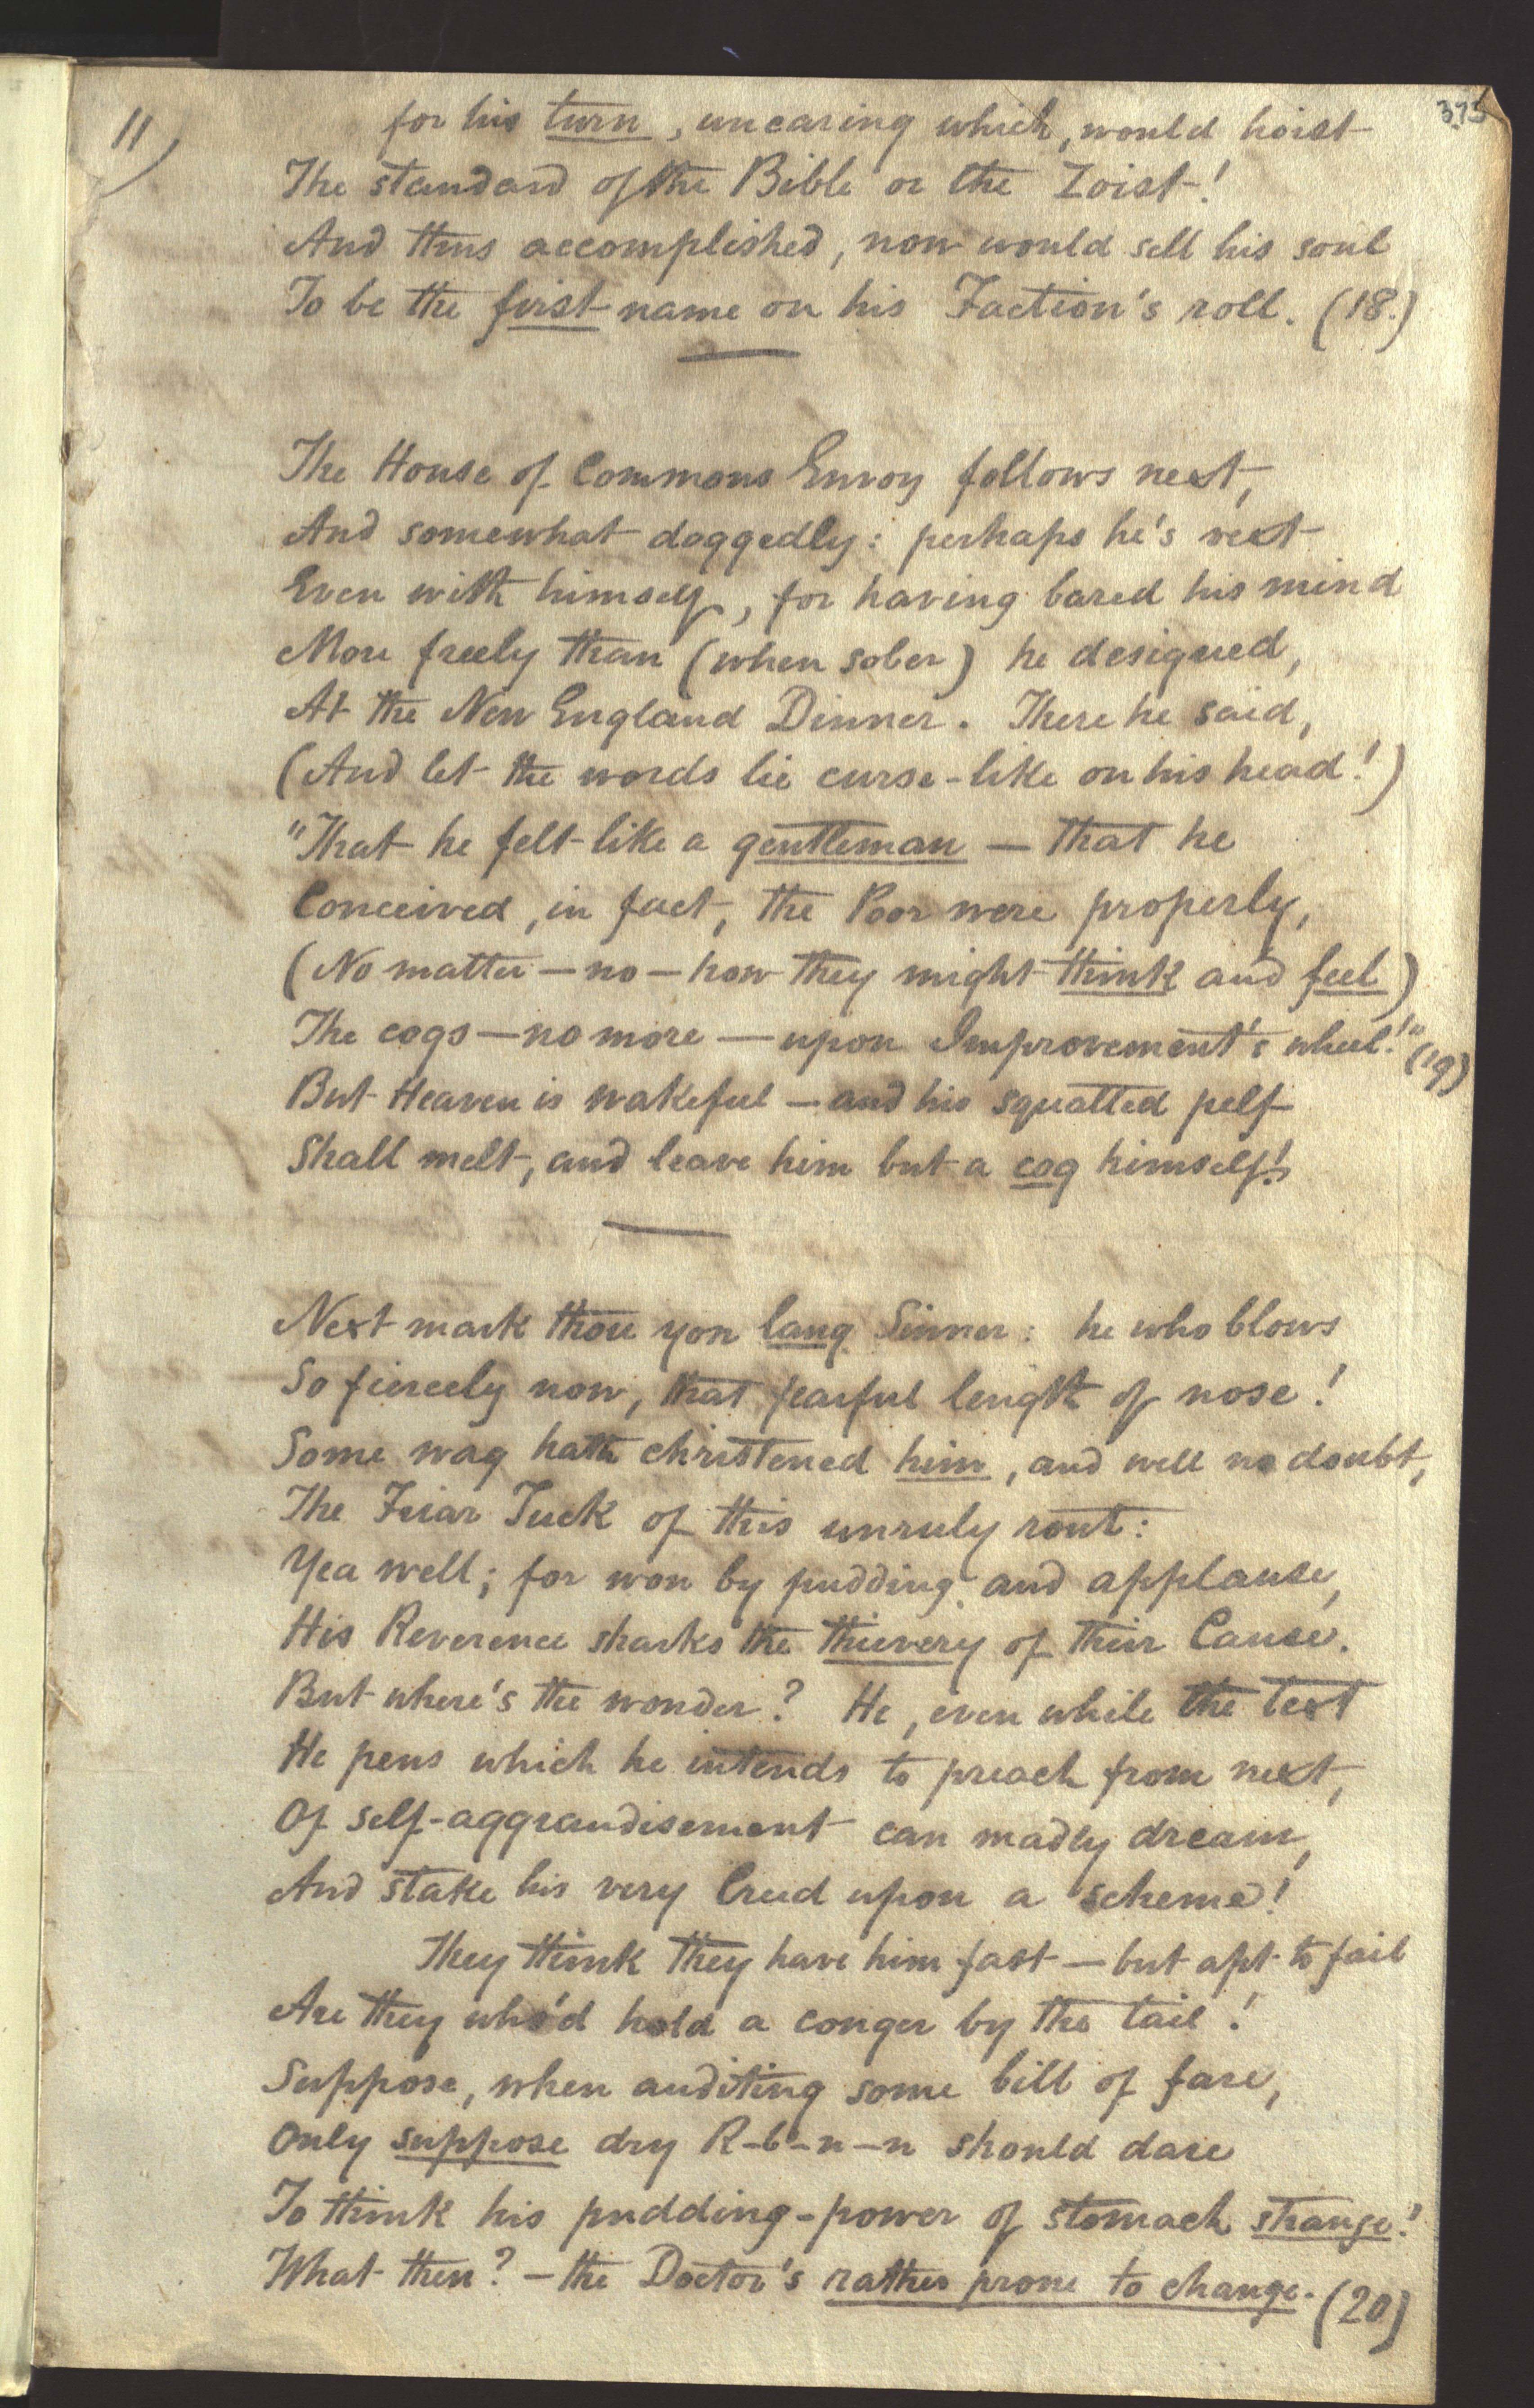 11)
375
for his turn, uncaring which, would hoist
The standard of the Bible or the Zoist!
And thus accomplished, now would sell his soul
To be the first name on his Faction's roll. (18.)
The House of Commons Envoy follows next,
And somewhat doggedly: perhaps he's vext
Even with himself, for having bared his mind
More freely than (when sober) he designed,
At the New England Dinner. There he said,
(And let the words lie curse-like on his head!)
"That he felt like a gentleman — that he
Conceived, in fact, the Poor were properly,
(No matter — no — how they might think and feel)
The cogs — no more — upon Improvement's wheel!" (19)
But Heaven is wakeful — and his squatted pelf
Shall melt, and leave him but a cog himself!
Next mark thou yon lang Sinner: he who blows
So fiercely now, that fearful length of nose!
Some wag hath christened him, and well no doubt,
The Friar Tuck of this unruly rout:
Yea well; for won by pudding and applause,
His Reverence sharks the thievery of their Cause.
But where's the wonder? He, even while the text
He pens which he intends to preach from next,
Of self-aggrandisement can madly dream,
And stake his very Creed upon a scheme!
They think they have him fast — but apt to fail
Are they who'd hold a conger by the tail!
Suppose, when auditing some bill of fare,
Only suppose dry R-b-n-n should dare
To think his pudding-power of stomach strange!
What then? — the Doctor's rather prone to change. (20)